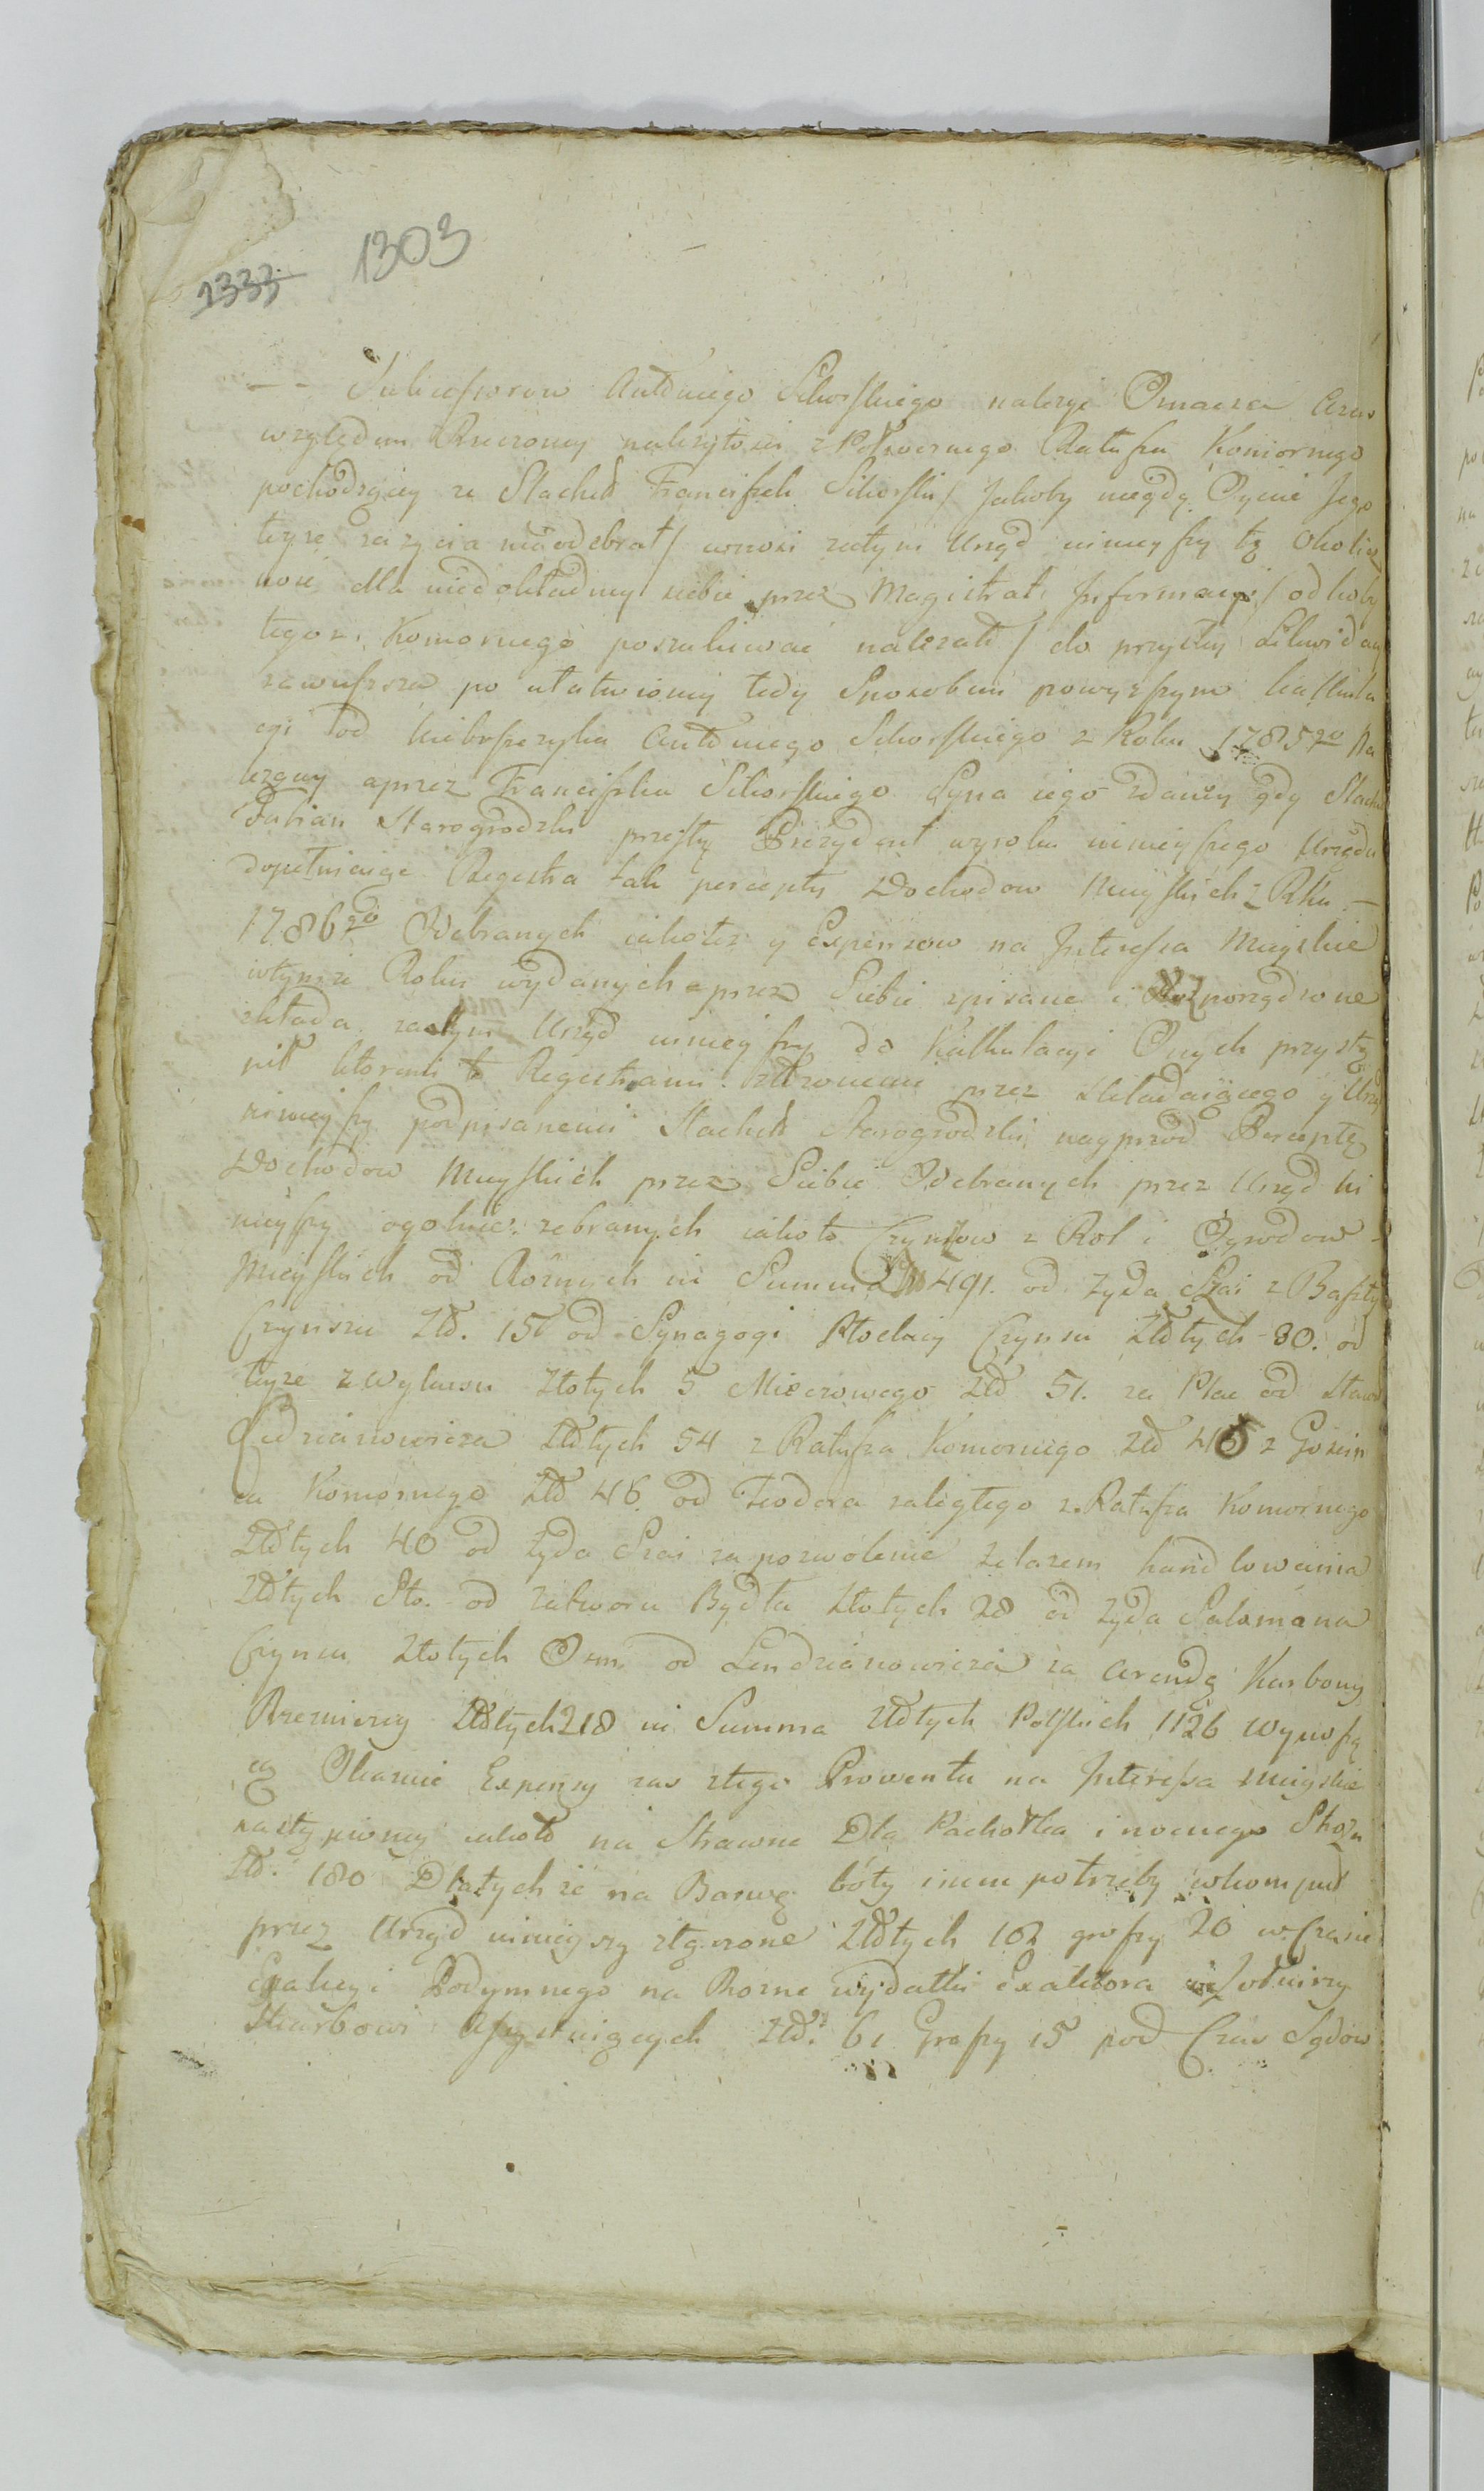 1303
1333
Sukcessorow Antoniego Sikorskiego należyć Oznacza a zaś
względem Rzeczoney należytości z Ratusza Komornego
pochodzącey ze Slachet Franciszek Sikorski / Jakoby niegdy Oyciec Jego
teyże za życia nie odebrał / wnosi zatym Urząd ninieyszy tę Okolicz
ność dla niedokładney siebie przez Magistrat Informacyi / od koby
tegoż Komornego poszukiwać należało / do przyszłey Likwidacyi
zawiesza po ułatwioney tedy Sposobem powyższym kalkula
cyi od Antoniego Sikorskiego z Roku 1785go Na
leżącey a przez Franciszka Sikorskiego Syna iego zdaney gdy Slachet
Fabian Starogrodzki przeszły Prezydent wyroku ninieyszego Urzędu
dopełniaiąc Regestra tak percepty Dochodow Mieyskich z Rku
1786go Odebranych iakoteż y Expensow na Interessa Mieyskie
wtymże Roku wydanych przez Siebie spisane i Rozporządzone
składa zaczym Urząd ninieyszy do Kalkulacyi Onych przystą
pił ktoremi to Regestrami złożonemi przez składaiącego y Urząd
ninieyszy podpisanemi Slachet Starogrodzki nayprzod Perceptę
Dochodow Mieyskich przez Siebie Odebranych przez Urząd ni
nieyszy ogolnie zebranych iakoto Czynszow z Rol i Ogrodow
Mieyskich od Rożnych in Summa 491. od Żyda Szai z Baszty
Czynszu Złł. 15 od Synagogi Kłockiey Czynszu Złłtych 30. od
teyże zwyławu Złotych 5 Miarowego Złł 51. za Plac od
Lędzianowicza Złłtych 54 z Ratusza Komornego Złł 46 z Gościn
ca Komornego Złł 46 od Teodora zaległego z Ratusza Komornego
Złłtych 40 od Żyda Szai za pozwolenie żelazem handlowania
Złłtych Sto. od zatworu Bydła Złotych 28 od Żyda Salomona
Czynszu Złotych Osm od Lendzianowicza za Arendę Karbony
Rzezniczey Złłtych 218 in Summa Złłtych Polskich 1126 Wynoszą
cą Okazuie Expensy zas ztego Prowentu na Interessa Mieyskie
nastąpioney iakoto na Strawne Dla Pachołka i nocnego Stroża
Złł. 180 Dla tychże na Barwę bóty inne potrzeby wkomput
przez Urząd ninieyszy złączone Złłtych 102 groszy 20 w Czasie
Exakcyi Podymnego na Rożne wydatki Exaktora Żołnierzy
Skarbowi Assystuiących Złł. 61 Groszy 15 pod Czas Sądow